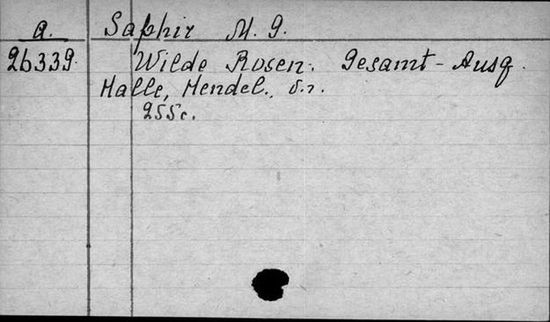 a. Saphir M. G.
26339. Wilde Rosen. Gesamt-Ausg.
Halle, Hendel., s.r.
255c.